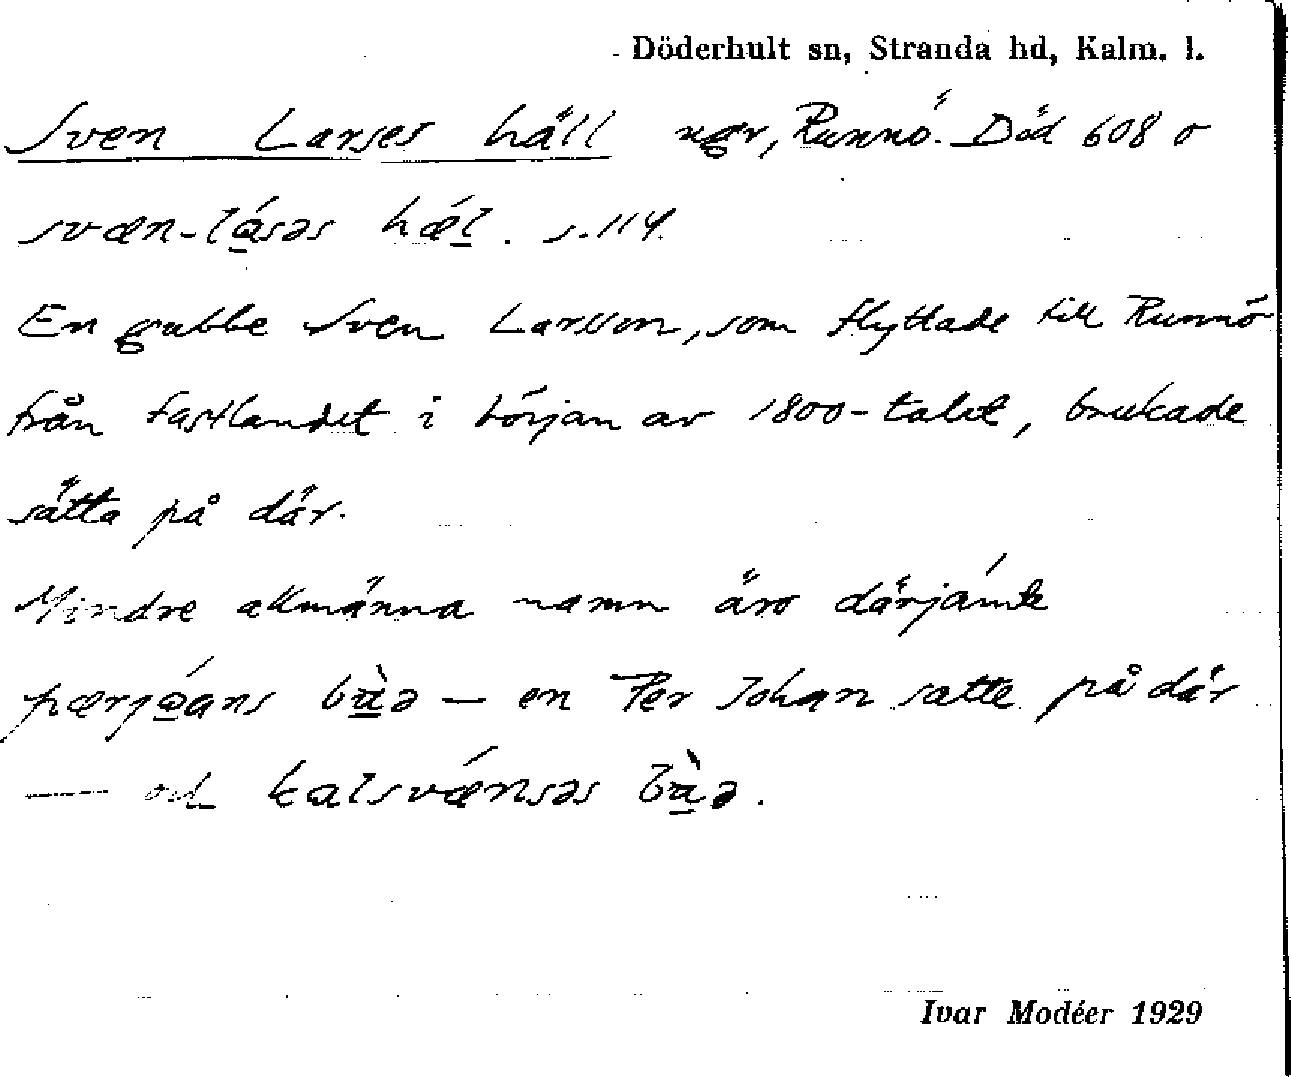 Döderhult sn, Stranda hd, Kalm. l.
Sven Larses häll ngr, Runnö. Död 608 o
svæn-lásəs hǽl. s. 114.
En gubbe Sven Larsson, som flyttade till Runnö
från fastlandet i början av 1800-talet, brukade
sätta på där.
Mindre allmänna namn äro därjämte
bàə — en Per Johan satte på där
— och kalsvǽnsəs bàə.
Ivar Modéer 1929